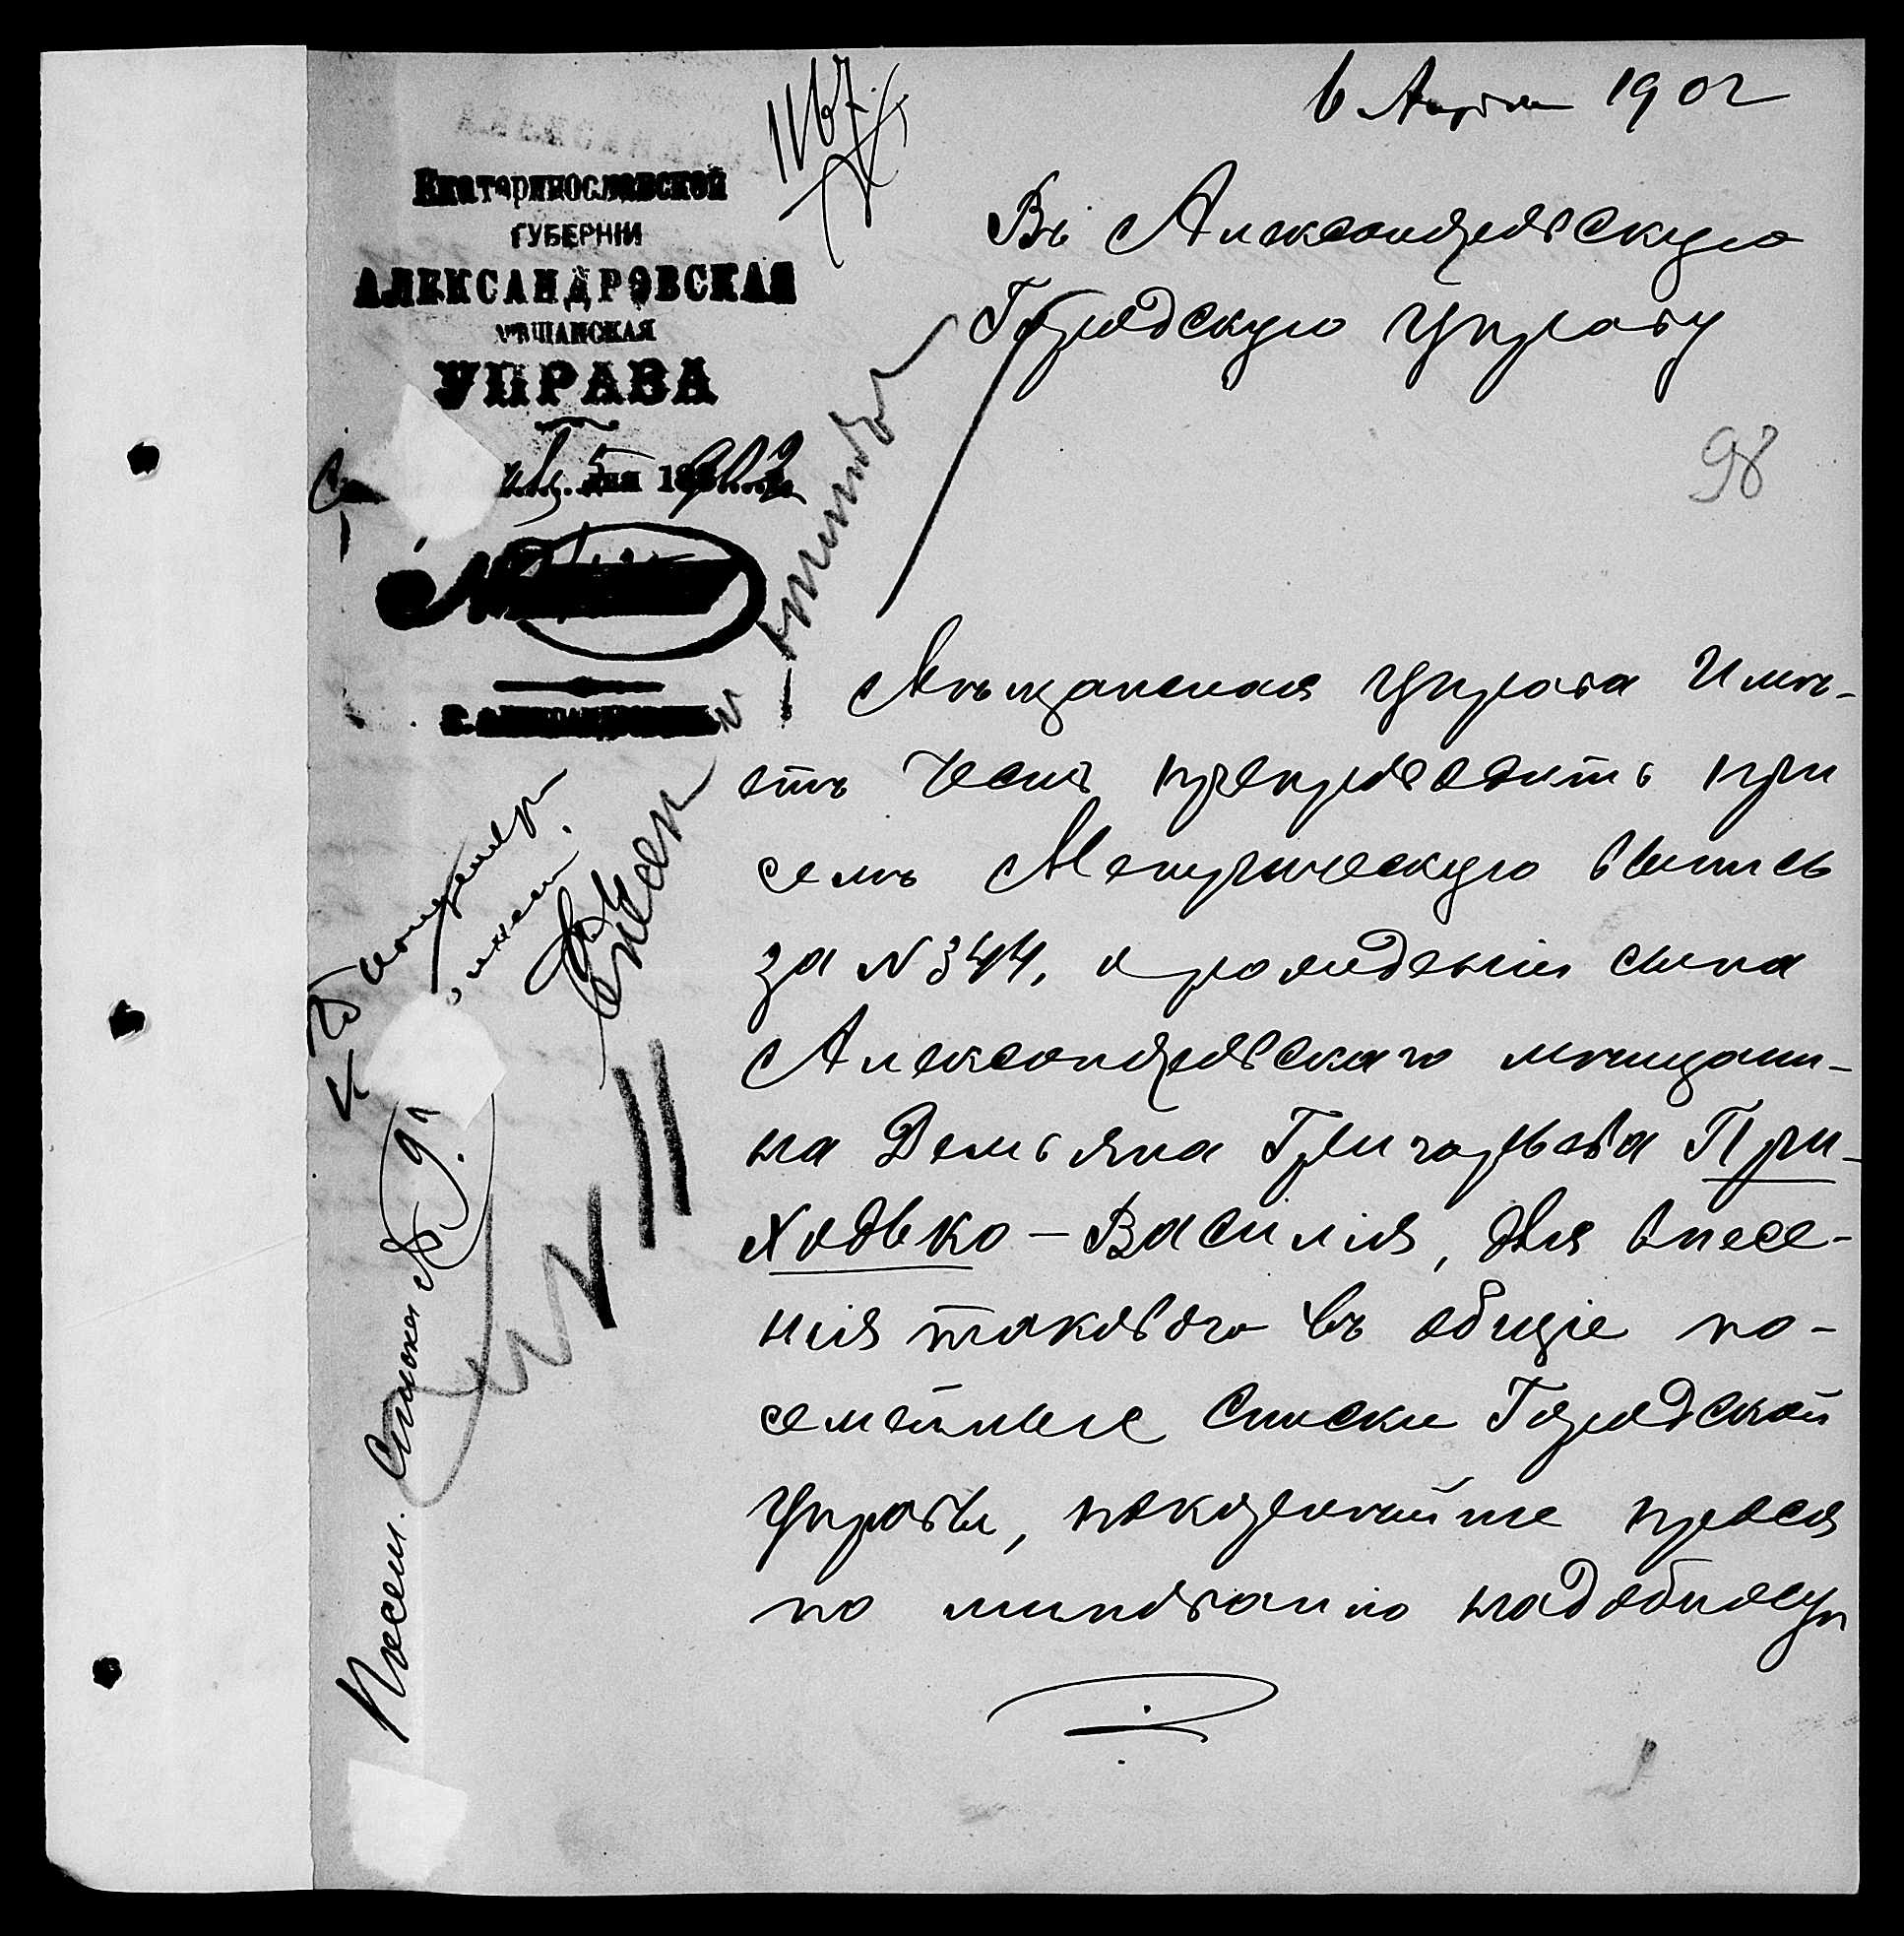 6 Апрѣля 1902
1167.
Екатеринославской
ГУБЕРНІИ
АЛЕКСАНДРОВСКАЯ
МѢЩАНСКАЯ
УПРАВА
5 дня 1902
Г. АЛЕКСАНДРОВСКЪ
Въ Александровскую
Городскую Управу
98
Мѣщанская Управа имѣ-
етъ честь препроводить при
семъ Метрическую выпись
за N 344, о рожденіи сына
Александровскаго мѣщани-
на Демьяна Григорьева При-
ходько – Василія, для внесе-
нія такового въ общіе по-
семейные списки Городской
Управы, покорнѣйше прося
по минованію надобносу
Посем. Списокъ № 9